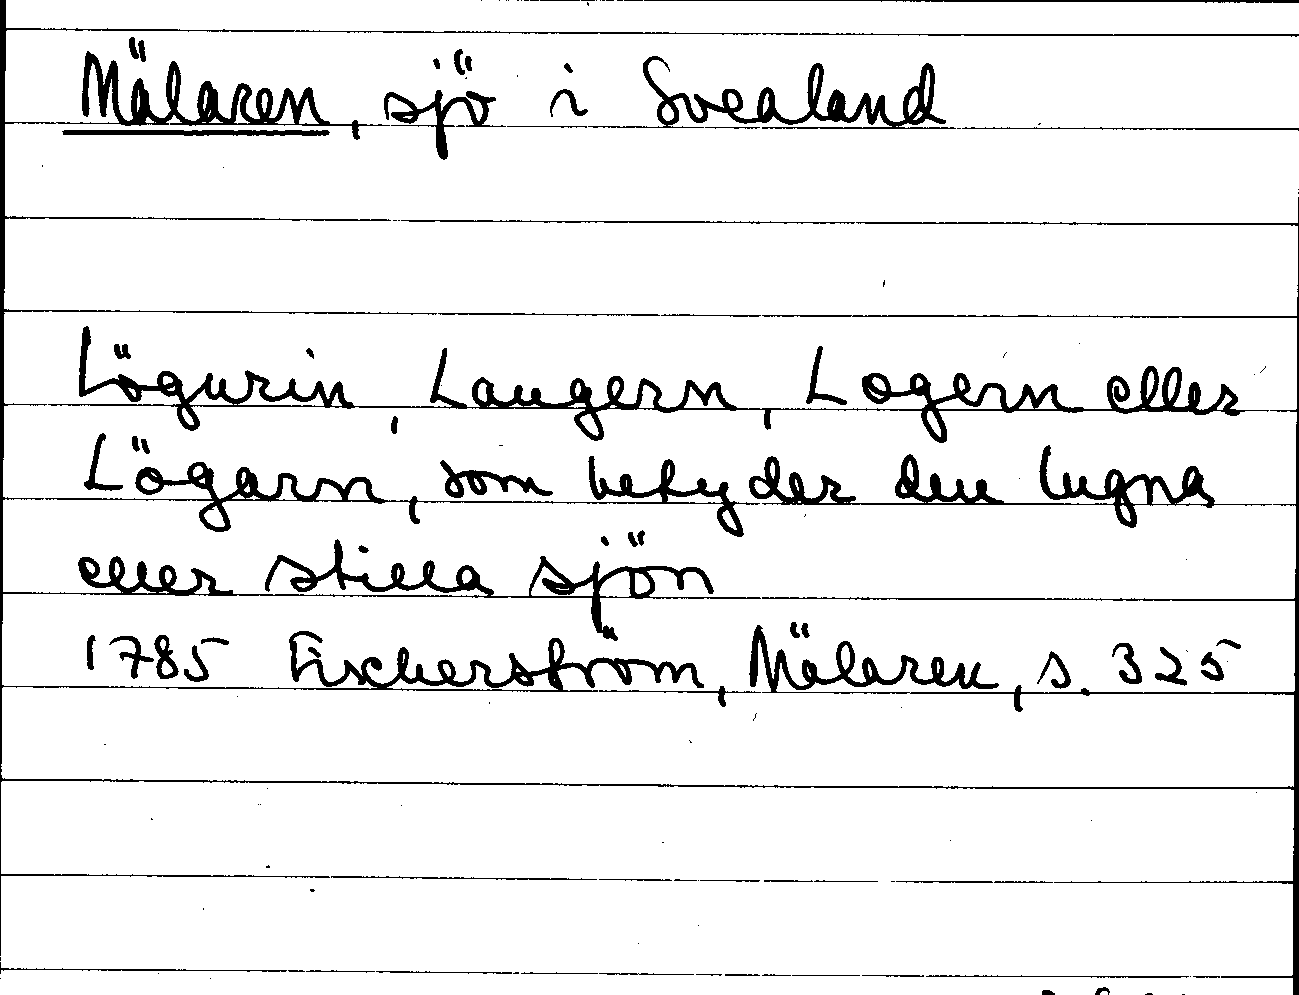 Mälaren, sjö i Svealand
Lögurin, Laugern, Logern eller
Lögarn, som betyder den lugna
eller stilla sjön
1785 Fischerström, Mälaren, s. 325